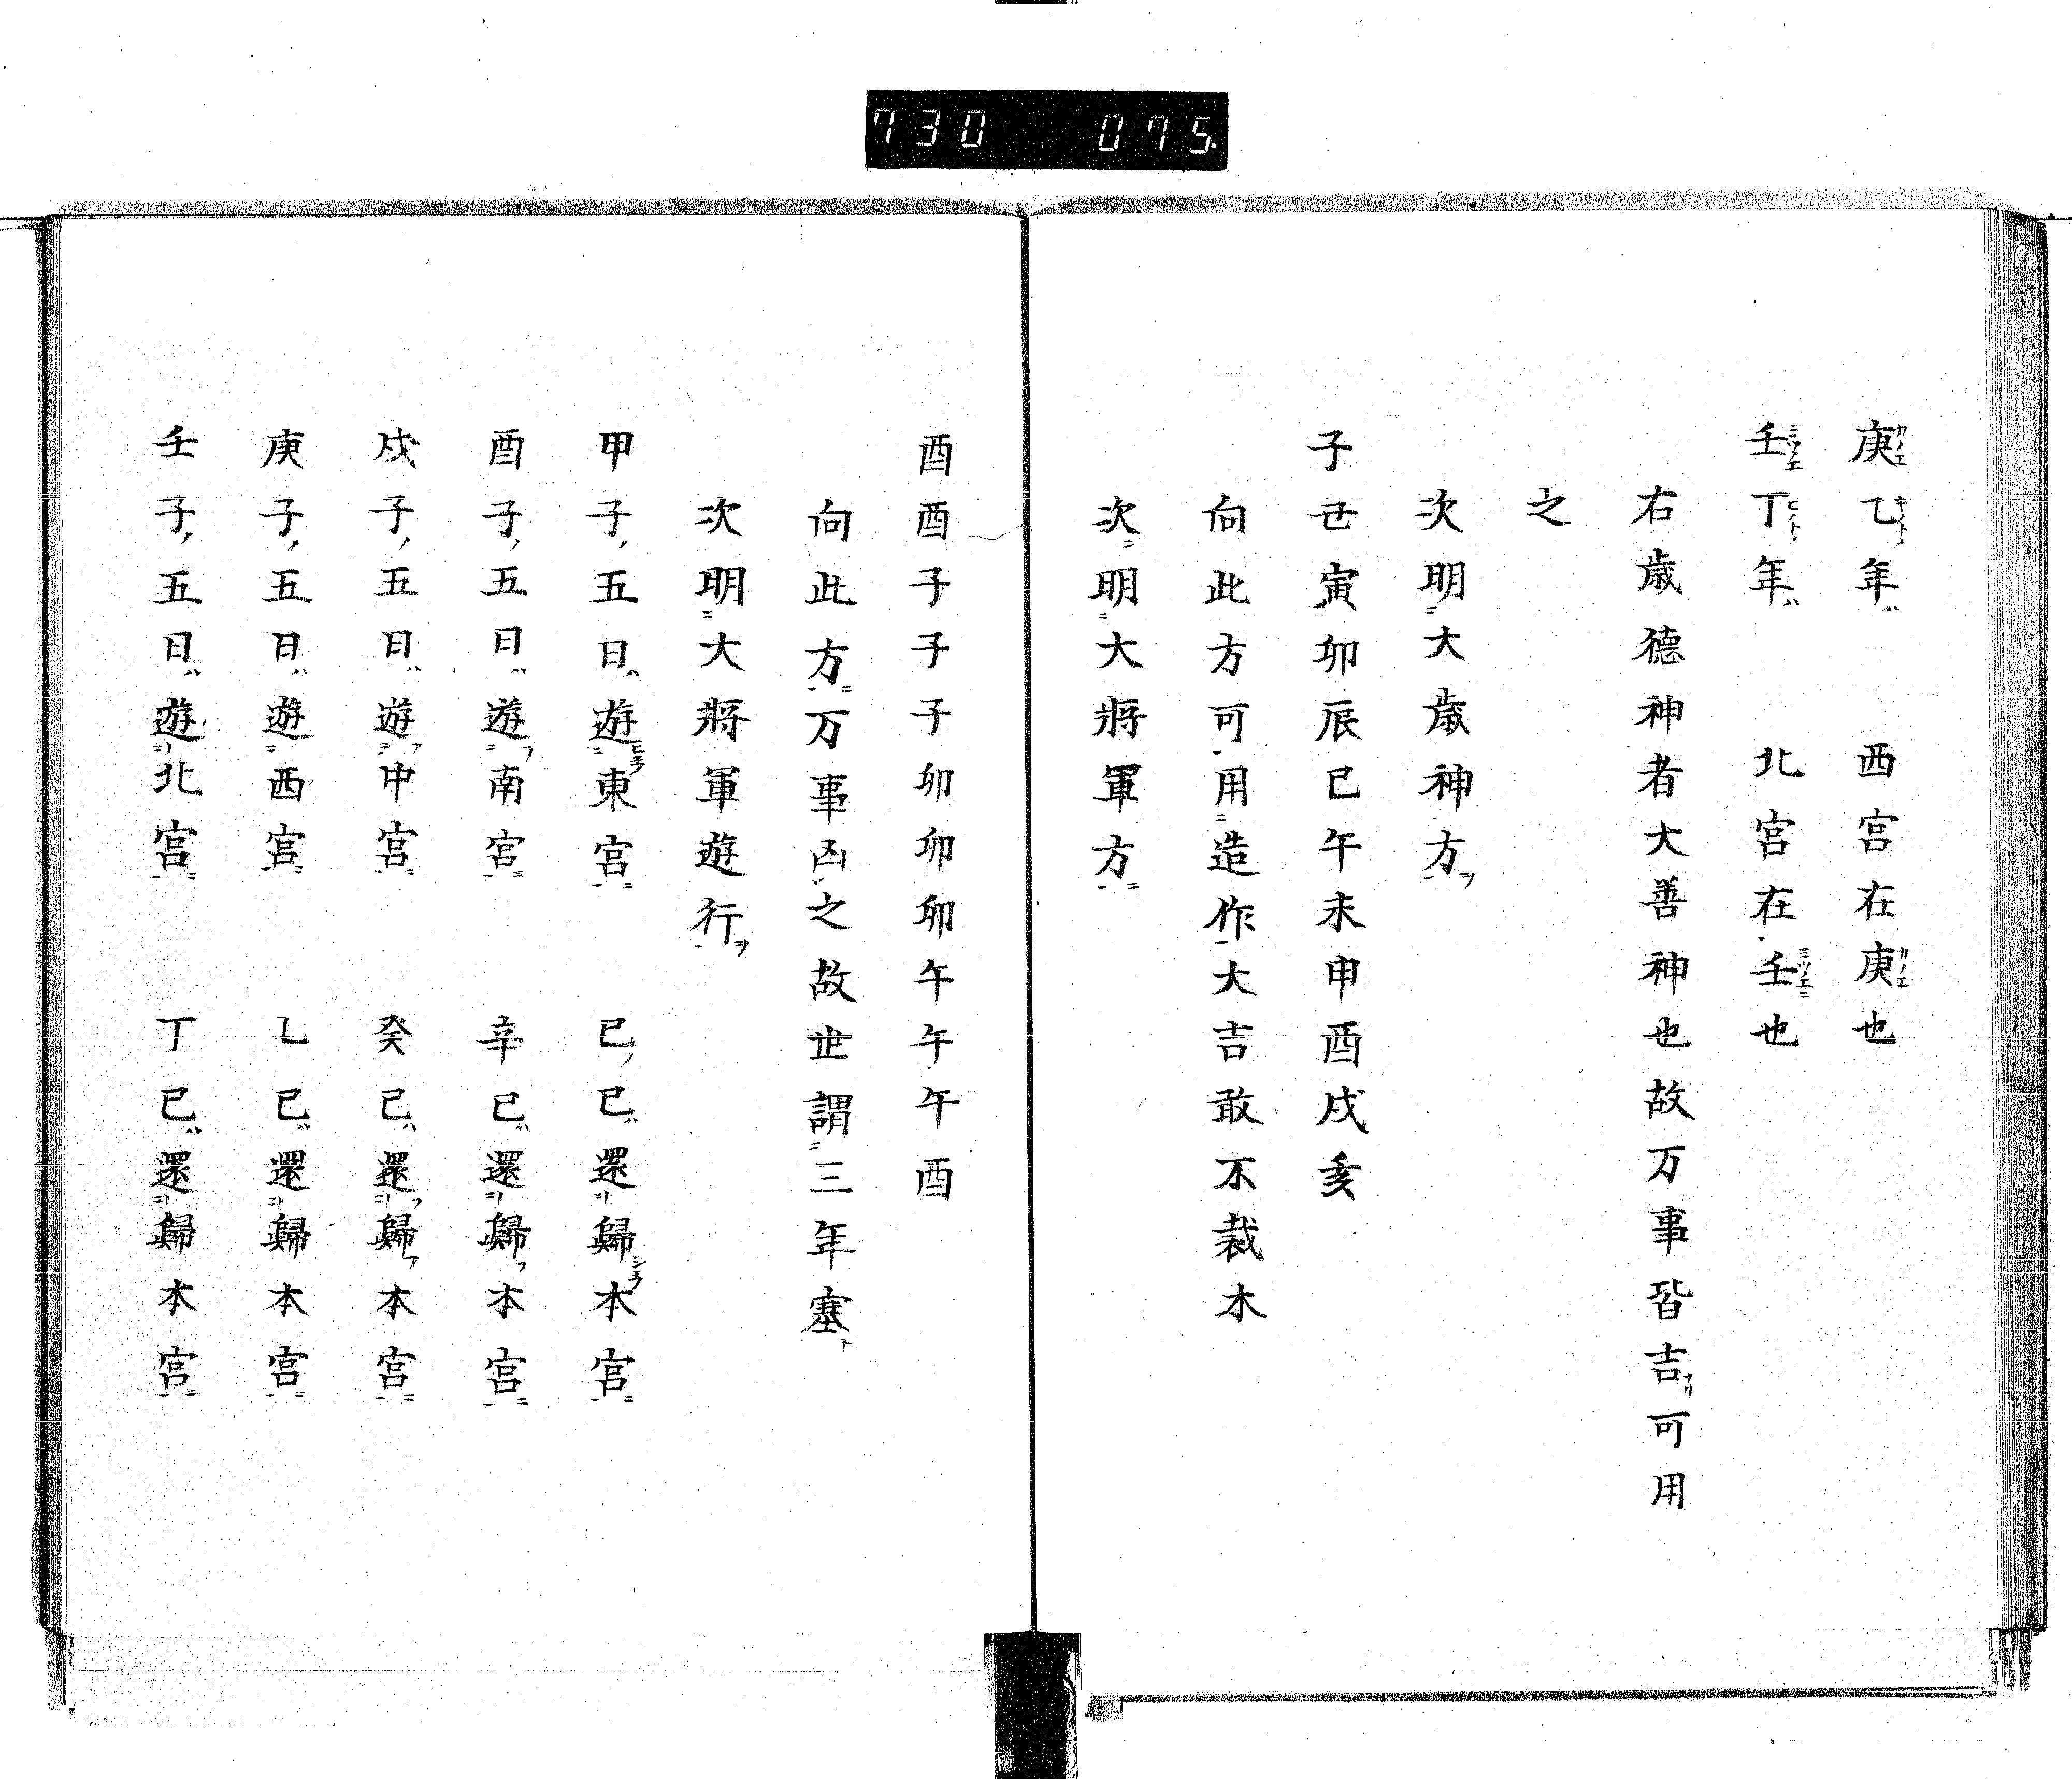 730 075
庚乙年 西宮在庚也
壬丁年 北宮在壬也
右歳德神者大善神也故万事皆吉可用
之
次明大歳神方
子丑寅卯辰巳午未申酉戌亥
向此方可用造作大吉敢不裁木
次明大將軍方
酉酉子子子卯卯卯午午午酉
向此方万事凶之故世謂三年塞
次明大將軍遊行
甲子五日遊東宮 己巳還歸本宮
酉子五日遊南宮 辛巳還歸本宮
戊子五日遊中宮 癸巳還歸本宮
庚子五日遊西宮 乙巳還歸本宮
壬子五日遊北宮 丁巳還歸本宮